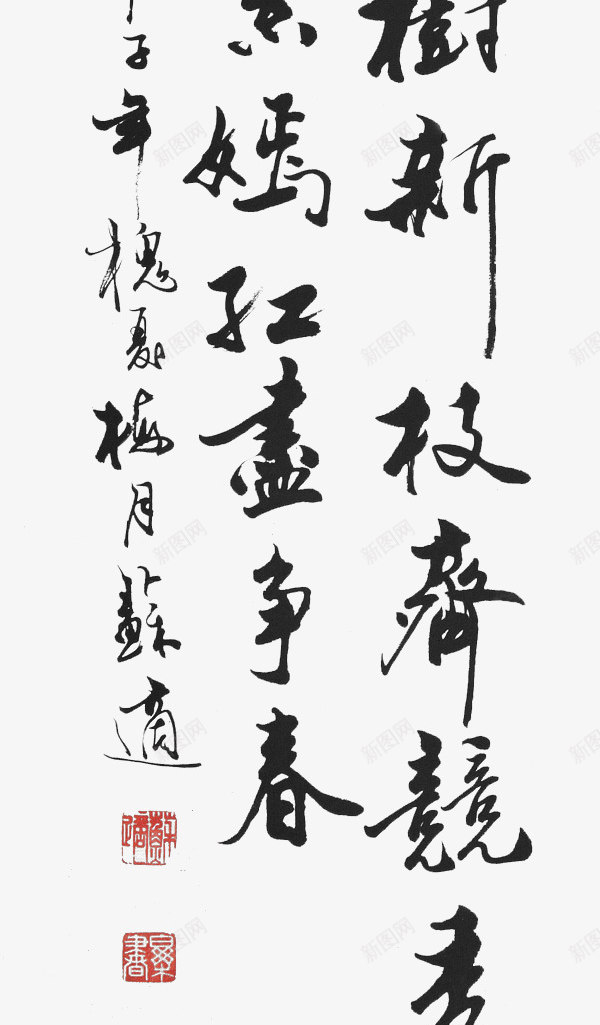 樹新枝齊競秀
紫嫣紅盡爭春
子年槐夏梅月蘇適
新图网